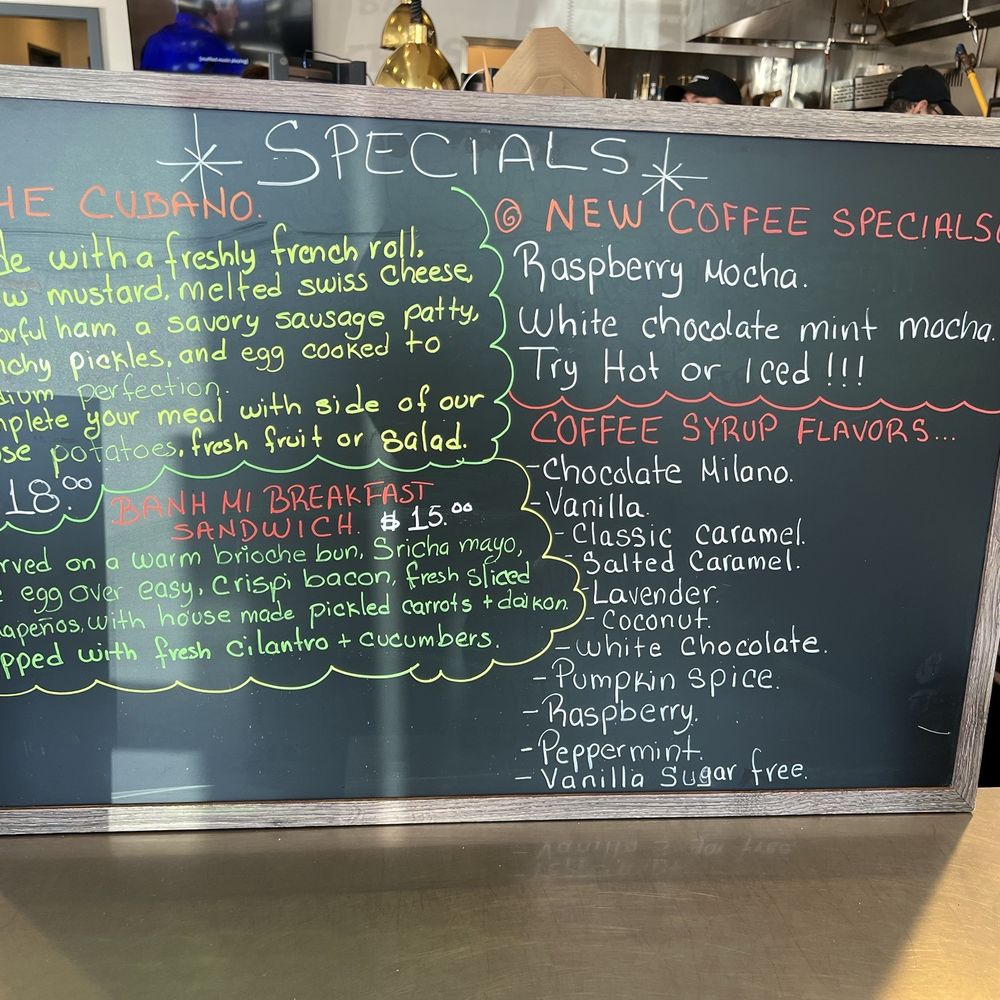 SPECIALS
HE CUBANO.
de with a freshly french roll,
w mustard, melted swiss cheese,
orful ham a savory sausage patty,
nchy pickles, and egg cooked to
dium perfection.
mplete your meal with side of our
se potatoes, fresh fruit or salad.
18.00
BANH MI BREAKFAST
SANDWICH. $15.00
rved on a warm brioche bun, Sricha mayo,
e egg over easy, crispi bacon, fresh sliced
apeños, with house made pickled carrots + daikon.
pped with fresh cilantro + cucumbers.
NEW COFFEE SPECIALS
Raspberry Mocha.
White chocolate mint mocha.
Try Hot or Iced!!!
COFFEE SYRUP FLAVORS...
-Chocolate Milano.
-Vanilla.
-Classic caramel.
-Salted Caramel.
-Lavender.
-Coconut.
-White Chocolate.
-Pumpkin spice.
-Raspberry.
-Peppermint.
-Vanilla Sugar free.